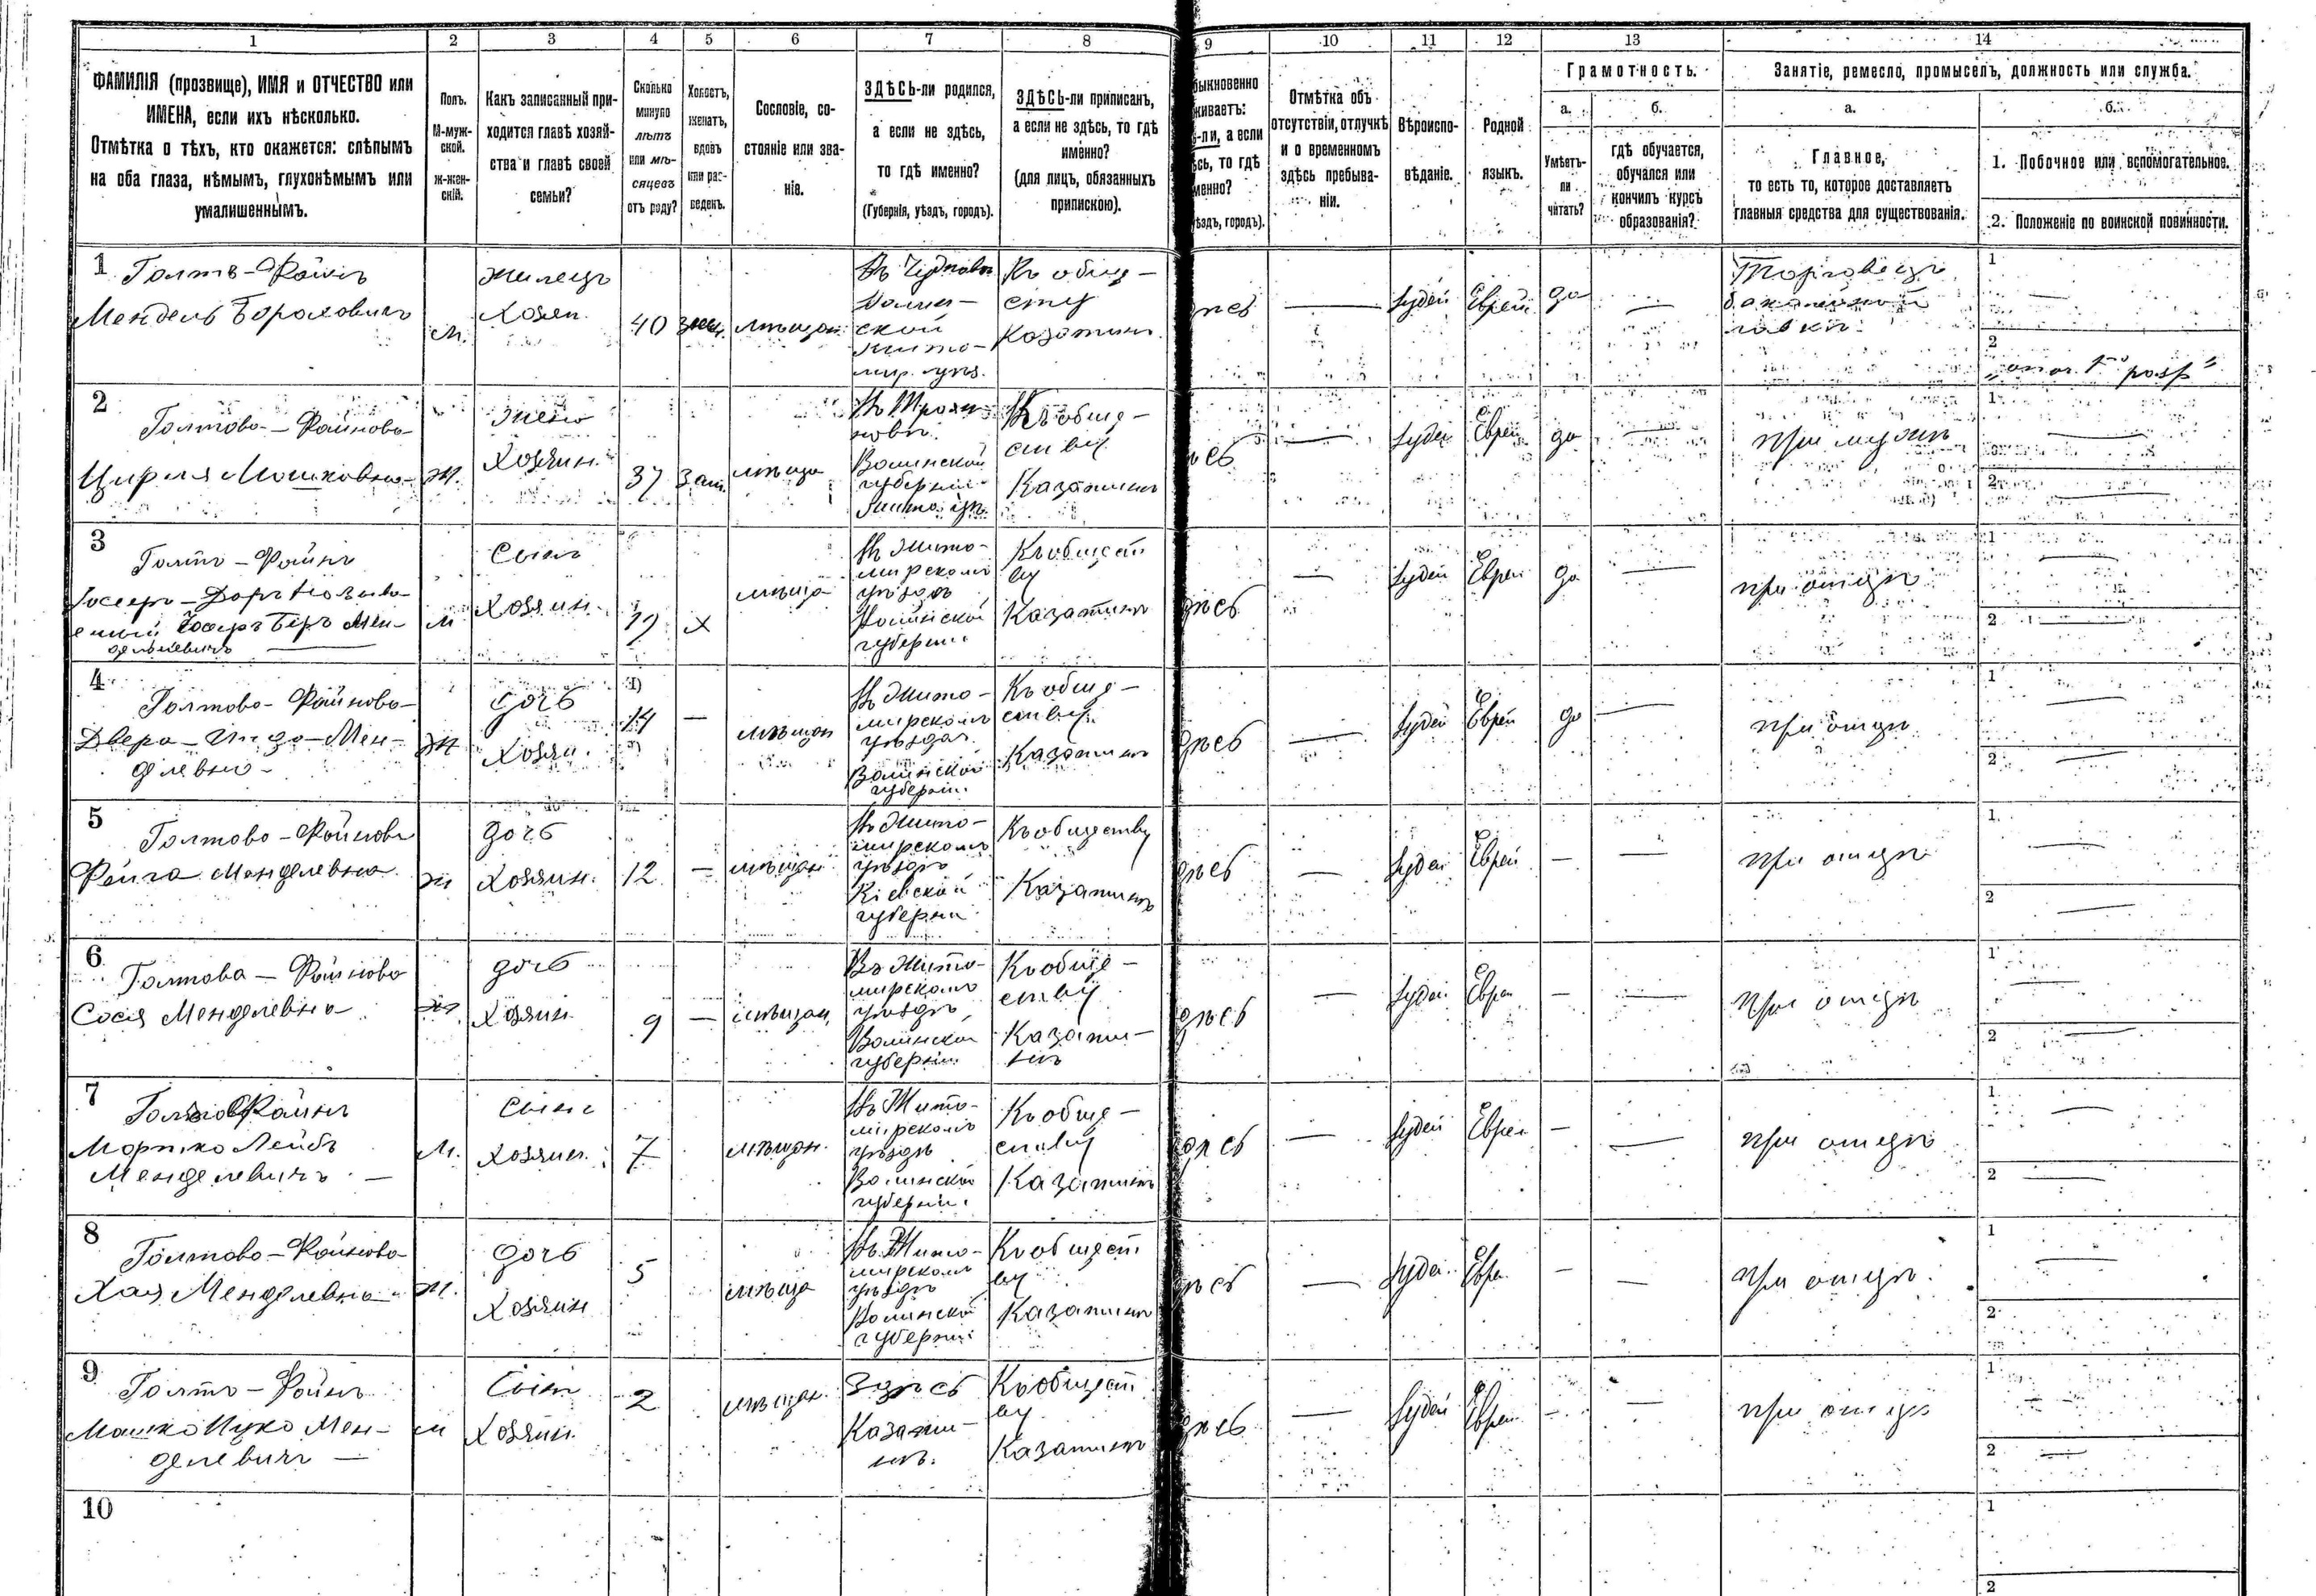 1 2 3 4 5 6 7 8 9 10 11 12 13 14
ФАМИЛІЯ (прозвище), ИМЯ и ОТЧЕСТВО или
ИМЕНА, если ихъ нѣсколько.
Отмѣтка о тѣхъ, кто окажется: слѣпымъ
на оба глаза, нѣмымъ, глухонѣмымъ или
умалишеннымъ.
Полъ.
М-муж-
ской.
ж-жен-
скій.
Какъ записанный при-
ходится главѣ хозяй-
ства и главѣ своей
семьи?
Сколько
минуло
лѣтъ
или мѣ-
сяцевъ
отъ роду?
Холостъ,
женатъ,
вдовъ
или раз-
веденъ.
Сословіе, со-
стояніе или зва-
ніе.
ЗДѢСЬ-ли родился,
а если не здѣсь,
то гдѣ именно?
(Губернія, уѣздъ, городъ).
ЗДѢСЬ-ли приписанъ,
а если не здѣсь, то гдѣ
именно?
(для лицъ, обязанныхъ
припискою).
быкновенно
живаетъ:
-ли, а если
сь, то гдѣ
менно?
ѣздъ, городъ).
Отмѣтка объ
отсутствіи, отлучкѣ
и о временномъ
здѣсь пребыва-
ніи.
Вѣроиспо-
вѣданіе.
Родной
языкъ.
Грамотность.
а.
Умѣетъ-
ли
читать?
б.
гдѣ обучается,
обучался или
кончилъ курсъ
образованія?
Занятіе, ремесло, промыселъ, должность или служба.
а.
Главное,
то есть то, которое доставляетъ
главныя средства для существованія.
б.
1. Побочное или вспомогательное.
2. Положеніе по воинской повинности.
1
Голтъ-Файнъ
Мендель Бороховичъ
м.
жилецъ
Хозяи.
40
жен.
мѣщан.
Въ Чудновѣ
Волын-
ской
Жито-
мир. уѣз.
Къ обще-
ству
Казатинъ
дѣсь
—
Іудей
Еврей
да
—
Торговецъ
бакалейной
лавки
1
—
2
2
Голтова-Файнова
Цирля Мошковна
ж.
жена
Хозяин.
37
Зам.
мѣща
Въ Троян
новѣ
Волынской
губерніи
Къ обще-
ству
Казатинъ
ѣсь
—
Іудей
Еврей
да
—
при мужѣ
1
—
2
—
3
Голтъ-Файнъ
м
Сынъ
Хозяин.
Х
мѣща
Въ Жито-
мирскомъ
уѣздѣ
Волынской
губерніи
Къ общест
ву
Казатинъ
дѣсь
—
Іудей
Еврей
да
—
при отцѣ
1
—
2
—
4
Голтова-Файнова-
Двера-Инда-Мен-
делевна
ж
дочь
Хозяи.
14
—
мѣщан
Въ Жито-
мирскомъ
уѣздѣ
Волынской
губерніи.
Къ обще-
ству
Казатинъ
дѣсь
—
Іудей
Еврей
да
—
при отцѣ
1
—
2
—
5
Голтова-Файнова
Фейга Менделевна
ж
дочь
Хозяин.
12
—
мѣщан
Въ Жито-
мирскомъ
уѣздѣ
Кіевской
губерніи
Къ обществу
Казатинъ
дѣсь
—
Іудей
Еврей
—
—
при отцѣ
1
—
2
—
6
Голтова-Файнова
Сося Менделевна
ж
дочь
Хозяин
9
—
мѣщан
Въ Жито-
мирскомъ
уѣздѣ
Волынской
губерніи
Къ обще-
ству
Казати-
нъ
дѣсь
—
Іудей
Еврей
—
—
при отцѣ
1
—
2
—
7
Файнъ
Мортко Лейбъ
Менделевичъ
м.
Сынъ
Хозяин.
7
мѣщан.
Въ Жито-
мирскомъ
уѣздѣ
Волынской
губерніи.
Къ обще-
ству
Казатинъ
дѣсь
—
Іудей
Еврей
—
—
при отцѣ
1
—
2
—
8
Голтова-Файнова
Хая Менделевна
ж.
дочь
Хозяин
5
мѣща
Въ Жито-
мирскомъ
уѣздѣ
Волынской
губерніи
Къ общест
ву
Казатинъ
дѣсь
—
Іудей
Еврей
—
—
при отцѣ.
1
—
2
—
9
Голтъ-Файнъ
Мошко Ицко Мен-
делевичъ
м
Сынъ
Хозяин
2
мѣщан.
Здѣсь
Казати-
нъ.
Къ общест
ву
Казатинъ
дѣсь
—
Іудей
Еврей
—
—
при отцѣ
1
—
2
—
10
1
2